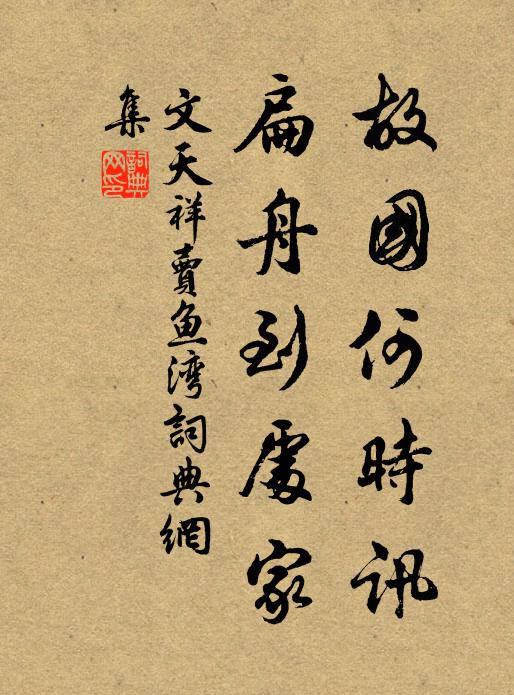 故國何時訊
扁舟到處家
文天祥賣鱼湾詞典網
集
詞典
网印